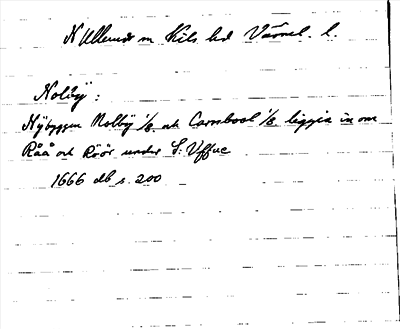 N Ullerud sn Kils hd Värml. l.
Nolby:
Nybyggen Nolbÿ 1/8 och Carnbool 1/8 liggia in om
Råå och Röör under S: Uffue
1666 db s. 200